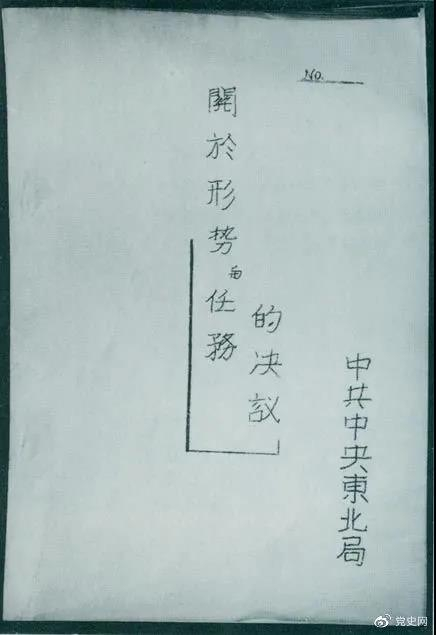 No.
關於形势和任務
的决議
中共中央東北局
党史网